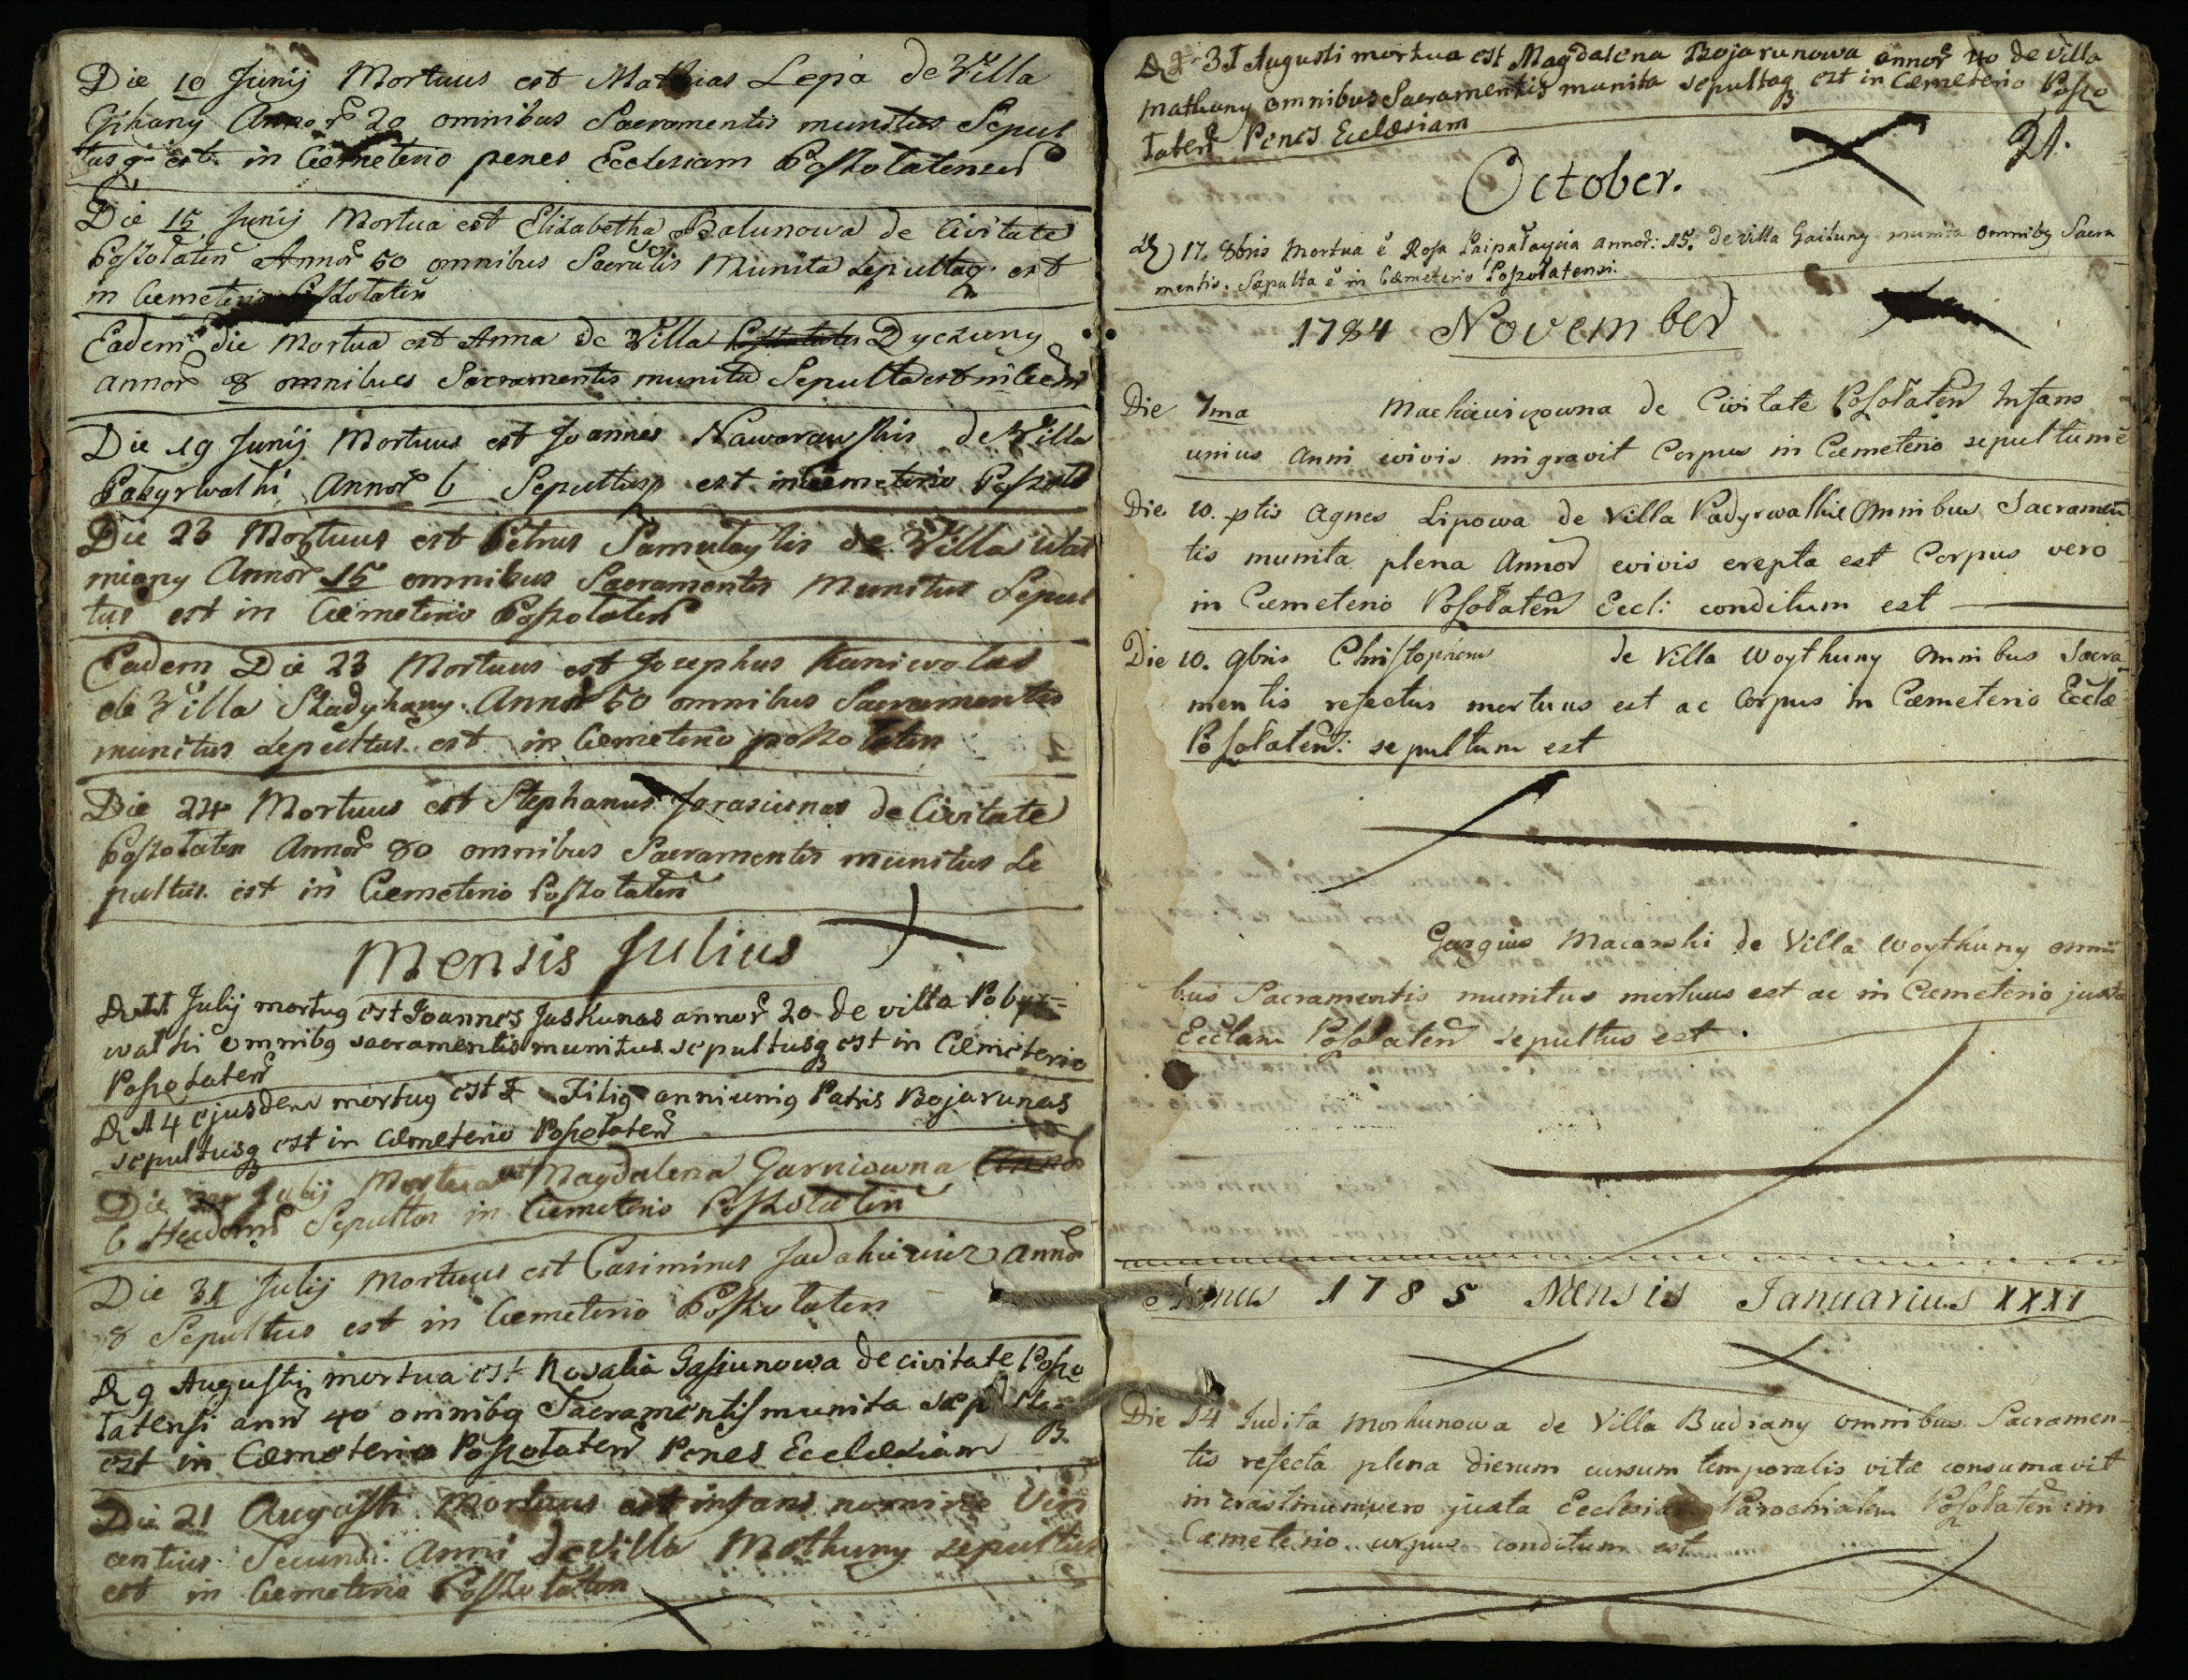 Die 10 Junij Mortuus est Mathias Lepa de Villa
Gihany Annor 20 omnibus Sacramentis munitus Sepul
tusq est in Cæmeterio penes Ecclesiam Poszolatensem
Die 15 Junij Mortua est Elizabetha Balunowa de Civitate
Poszolaten Annor 50 omnibus Sacrantis Munita Sepultaq est
in Cæmeterio Poszolaten
Eadem die Mortua est Anna de Villa Dyczuny
annor 8 omnibus Sacramentis munita Sepulta est in Cæm
Die 19 Junij Mortuus est Joannes Naworawskis de Villa
Pabyrwathi Annor 6 Sepultusq est in Cæmeterio Poszol
Die 23 Mortuus est Petrus Pamulaytis de Villa Utat
miany Annor 15 omnibus Sacramentis Munitus Sepul
tus est in Cæmeterio Poszolaten
Eadem Die 23 Mortuus est Josephus Kaniwolas
de Villa Skadyhany Annor 50 omnibus Sacramentis
munitus Sepultus est in Cæmeterio poszolaten
Die 24 Mortuus est Stephanus Jarasiunas de Civitate
Poszolaten Annor 80 omnibus Sacramentis munitus Se
pultus est in Cæmeterio Poszolaten
Mensis Julius
D 11 Julij mortuq est Joannes Juskunas annor 20 de villa Pobyr=
wathi omnibq sacramentis munitus sepultusq est in Cæmeterio
Poszolaten
D 14 ejusdem mortuq est Filiq anni uniq Patris Bojarunas
sepultusq est in Cæmeterio Poszolaten
Die Julij Mortua est Magdalena Garniowna
6 Hebdom Sepulta in Cæmeterio Poszolaten
Die 31 Julij Mortuus est Casimirus Jadahiewicz annor
8 Sepultus est in Cæmeterio Poszolaten
D 9 Augusti mortua est Rosalia Gasiunowa de civitate Poszo
latensi ann 40 omnibq Sacramentis munita
est in Cæmeterio Poszolaten Penes Ecclesiam
Die 21 Augusti Mortuus est infans nomine Vin
centius Secundi Anni de Villa Mathuny sepultus
est in Cæmeterio Poszolaten
D 31 Augusti mortua est Magdalena Bojarunowa annor 40 de villa
mathuny omnibus Sacramentis munita sepultaq est in Cæmeterio Poszo
laten Penes Ecclesiam
21.
October.
D 17. 8bris Mortua e Rosa Paipałaycia annor: 15. de villa Gaituny munita omnibq Sacra
mentis. Sepulta e in Cæmeterio Poszołatensi.
1784 November
Die 7ma Machiewiczowna de Civitate Posołaten Infans
unius anni evivis migravit Corpus in Cæmeterio sepultum e
Die 10. ptis Agnes Lipowa de Villa Padyrwalkie Omnibus Sacramen
tis munita plena Annor evivis erepta est Corpus vero
in Cæmeterio Posołaten Eccl: conditum est
Die 10. 9bris Christopherus de Villa Woythuny Omnibus Sacra
mentis refectus mortuus est ac Corpus in Cæmeterio Eccle
Posołaten: sepultum est
Gurgius Macarski de Villa Woythuny omni
bus Sacramentis munitus mortuus est ac in Cæmeterio juxta
Ecclam Posołaten sepultus est.
Annus 1785 Mensis Januarius XXXI
Die 14 Judita Morkunowa de Villa Budrany omnibus Sacramen-
tis refecta plena dierum cursum temporalis vitæ consumavit
in crastinum vero juxta Ecclesiam Parochialem Posołaten in
Cæmeterio corpus conditum est